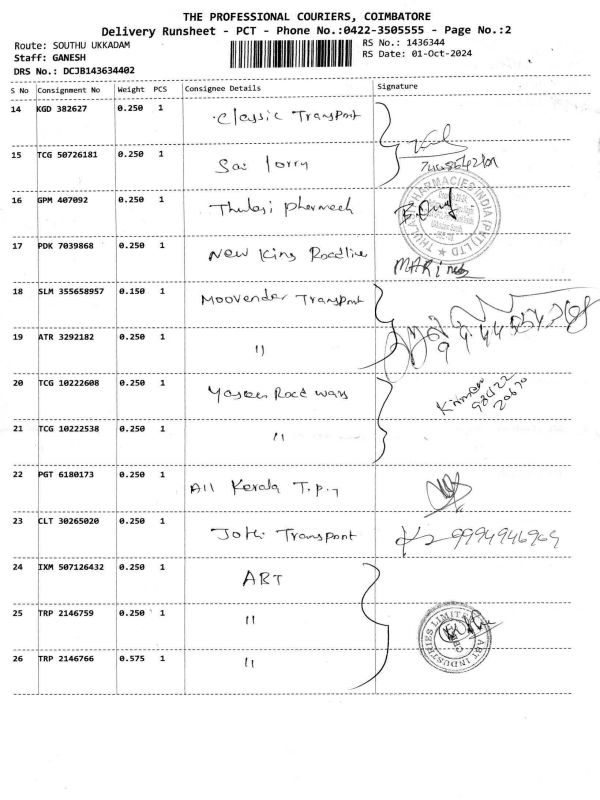 THE PROFESSIONAL COURIERS, COIMBATORE
Delivery Runsheet - PCT - Phone No.:0422-3505555 - Page No.:2
Route: SOUTHU UKKADAM
RS No.: 1436344
Staff: GANESH
RS Date: 01-Oct-2024
DRS No.: DCJB143634402
S No Consignment No Weight PCS Consignee Details Signature
14 KGD 382627 0.250 1 Classic Transport
15 TCG 50726181 0.250 1 Sai lorry
16 GPM 407092 0.250 1 Thulasi pharmech
17 PDK 7039868 0.250 1 New King Roadlines
18 SLM 355658957 0.150 1 Moovender Transport
19 ATR 3292182 0.250 1 "
20 TCG 10222608 0.250 1 Road ways
21 TCG 10222538 0.250 1 "
22 PGT 6180173 0.250 1 All Kerala T.p.
23 CLT 30265020 0.250 1 Jothi Transport 9994946964
24 IXM 507126432 0.250 1 ABT
25 TRP 2146759 0.250 1 "
26 TRP 2146766 0.575 1 "
ABT INDUSTRIES LIMITED